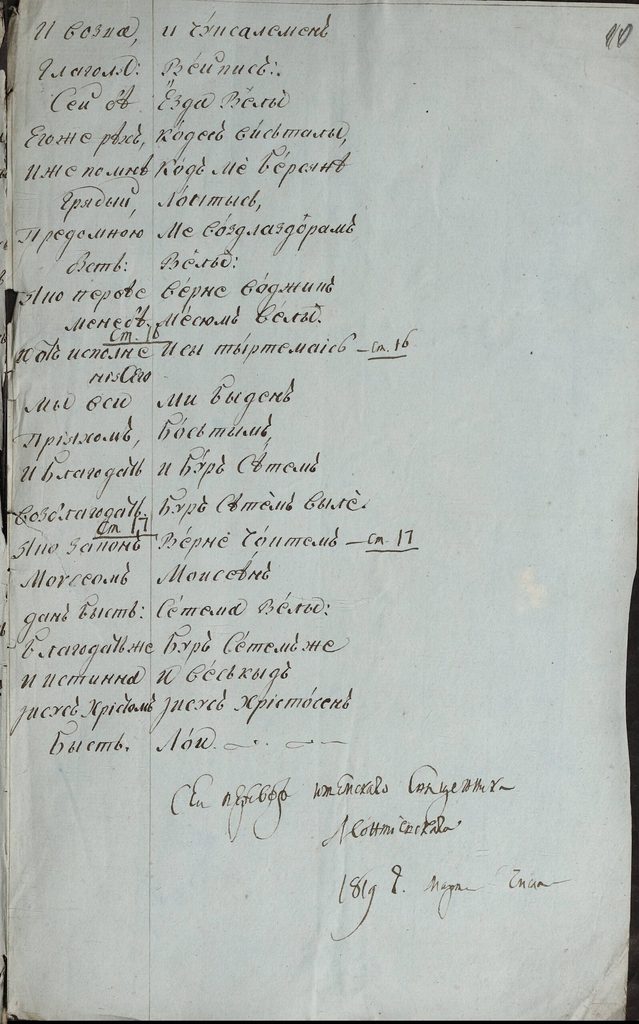 10
И возва, и Чу́исалеменъ
Глаголя: Ве́йпись:
Сей бѣ Ёзда Вёлы
Егоже рѣхъ, ко́десъ висьталы,
Иже помнѣ Кодъ ме бе́рсянь
Грядый, Локтысь,
Предомною Ме во́дзлаздо́рамъ
бсть: Вёлы:
Яко первѣе Ве́рне во́джикъ
мене бѣ. ме́сюмъ ве́лы.
Ст. 16
И отъ исполне Исы ты́ртемаісь – ст. 16
нія Его
мы вси ми быденъ
пріяхомъ, Бо́сьтымъ,
и благодать и Буръ Сѣтемъ
возблагодать. Буръ Сѣтемъ вылё.
Ст. 17
Яко законъ Ве́рне Чо́итемъ – ст. 17
Моѵсеомъ Моисеѣнъ
данъ бысть: Се́тема Ве́лы:
благодать же Буръ Се́темъ же
и истинна И ве́ськыдъ
Іисусъ Христомъ Іисусъ Христо́сенъ
Бысть. Ло́и.
Сей переводъ
1819 г. марта